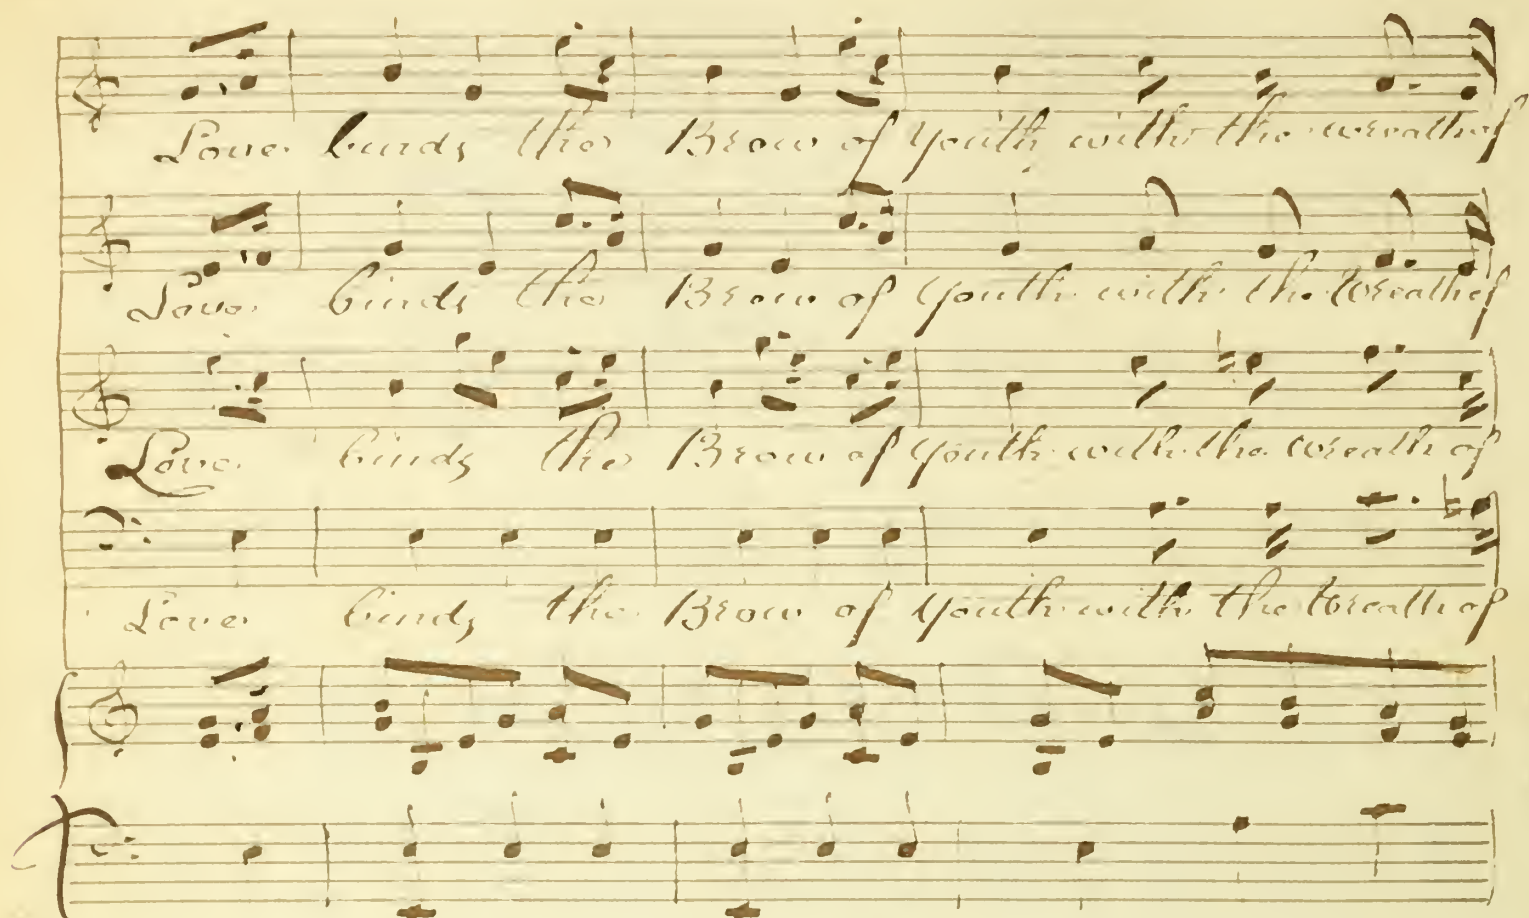 Love binds the Brow of Youth with the wreath of
Love binds the Brow of Youth with the Wreath of
Love binds the Brow of Youth with the wreath of
Love binds the Brow of Youth with the Wreath of